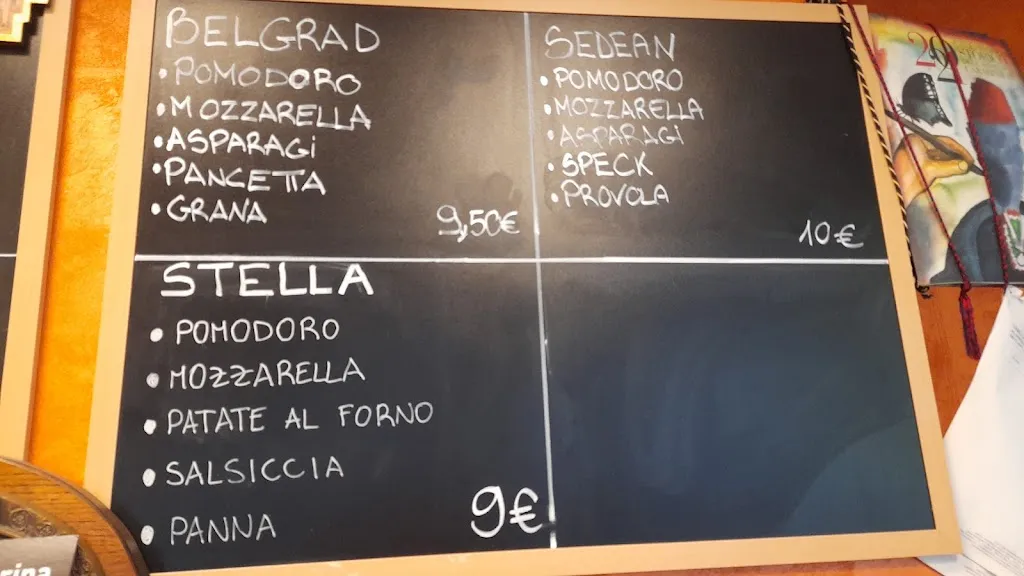 BELGRAD
• POMODORO
• MOZZARELLA
• ASPARAGi
• PANCETTA
• GRANA
9,50€
SEDEAN
• POMODORO
• MOZZARELLA
• ASPARAGi
• SPECK
• PROVOLA
10€
STELLA
• POMODORO
• MOZZARELLA
• PATATE AL FORNO
• SALSICCIA
• PANNA
9€